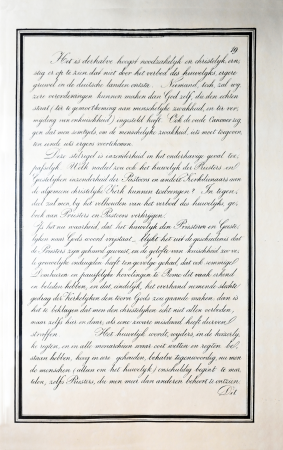 19
Het is derhalve hoogst noodzakelijk en christelijk, ern-
stig er op te zien dat niet door het verbod des huwelijks, ergere
gruwel en de duitsche landen ontsta. Niemand, toch, zal wij-
zere verordeningen kunnen maken dan God zelf, die den echten
staat (ter te gemoetkoming aan menschelijke zwakheid, en ter ver-
mijding van onkuischheid) ingesteld heeft. Ook de oude Canones zeg-
gen dat men somtijds, om de menschelijke zwakheid, iets moet toegeven
ten einde iets ergers voorkomen.
Deze stelregel is onzinderheid in het onderhavige geval toe-
passelijk. Welk nadeel zou ook het huwelijk der Priesters en
Geestelijken inzonderheid der Pastoren en andere Kerkdienaars aan
de algemeen christelijke Kerk kunnen toebrengen? In tegen-
deel zal men, bij het volhouden van het verbod des huwelijks, ge-
brek aan Priesters en Pastoren verkrijgen.
Is het nu waarheid, dat het huwelijk den Priesteren en Geeste-
lijken naar Gods woord vrijstaat, blijkt het uit de geschiedenis dat
de Priesters zijn gehuwd geweest, en de gelofte van kuischheid zoo ve-
le gruwelijke ontucht heeft ten gevolge gehad, dat ook sommige
Domheeren en pauselijke hovelingen te Rome dit vaak erkend
en beleden hebben, en dat, eindelijk, het overhand nemende slacht-
geding der Kerkelijken den toorn Gods zou gaande maken, dan is
het te beklagen dat men den christelijken echt niet alleen verboden,
maar zelfs hier en daar, als eene zware misdaad heeft durven
straffen. Het huwelijk wordt, wijders, in de keizerlij-
ke regten, en in alle monarchieen waar ooit wetten en regten be-
staan hebben, hoog in eere gehouden, behalve tegenwoordig, nu men
de menschen (alleen om het huwelijk) onschuldig begint te mar-
telen, zelfs Priesters, die men meer dan anderen behoort te ontzien.
Dit